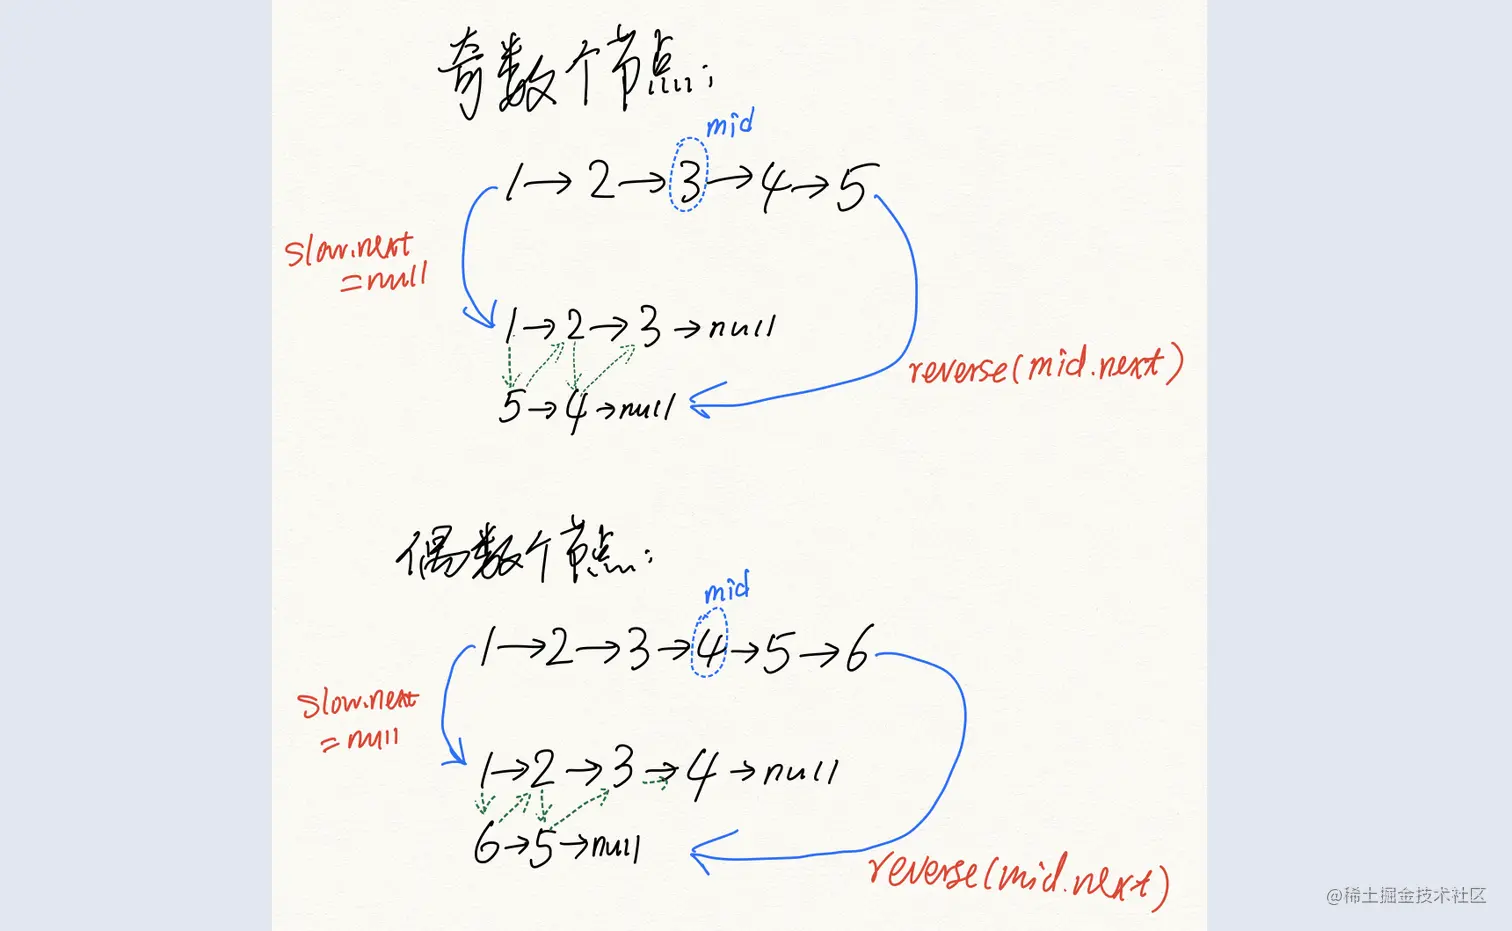 奇数个节点:
mid
1→2→3→4→5
slow.next
=null
1→2→3→null
reverse(mid.next)
5→4→null
偶数个节点:
mid
1→2→3→4→5→6
slow.next
=null
1→2→3→4→null
6→5→null
reverse(mid.next)
@稀土掘金技术社区